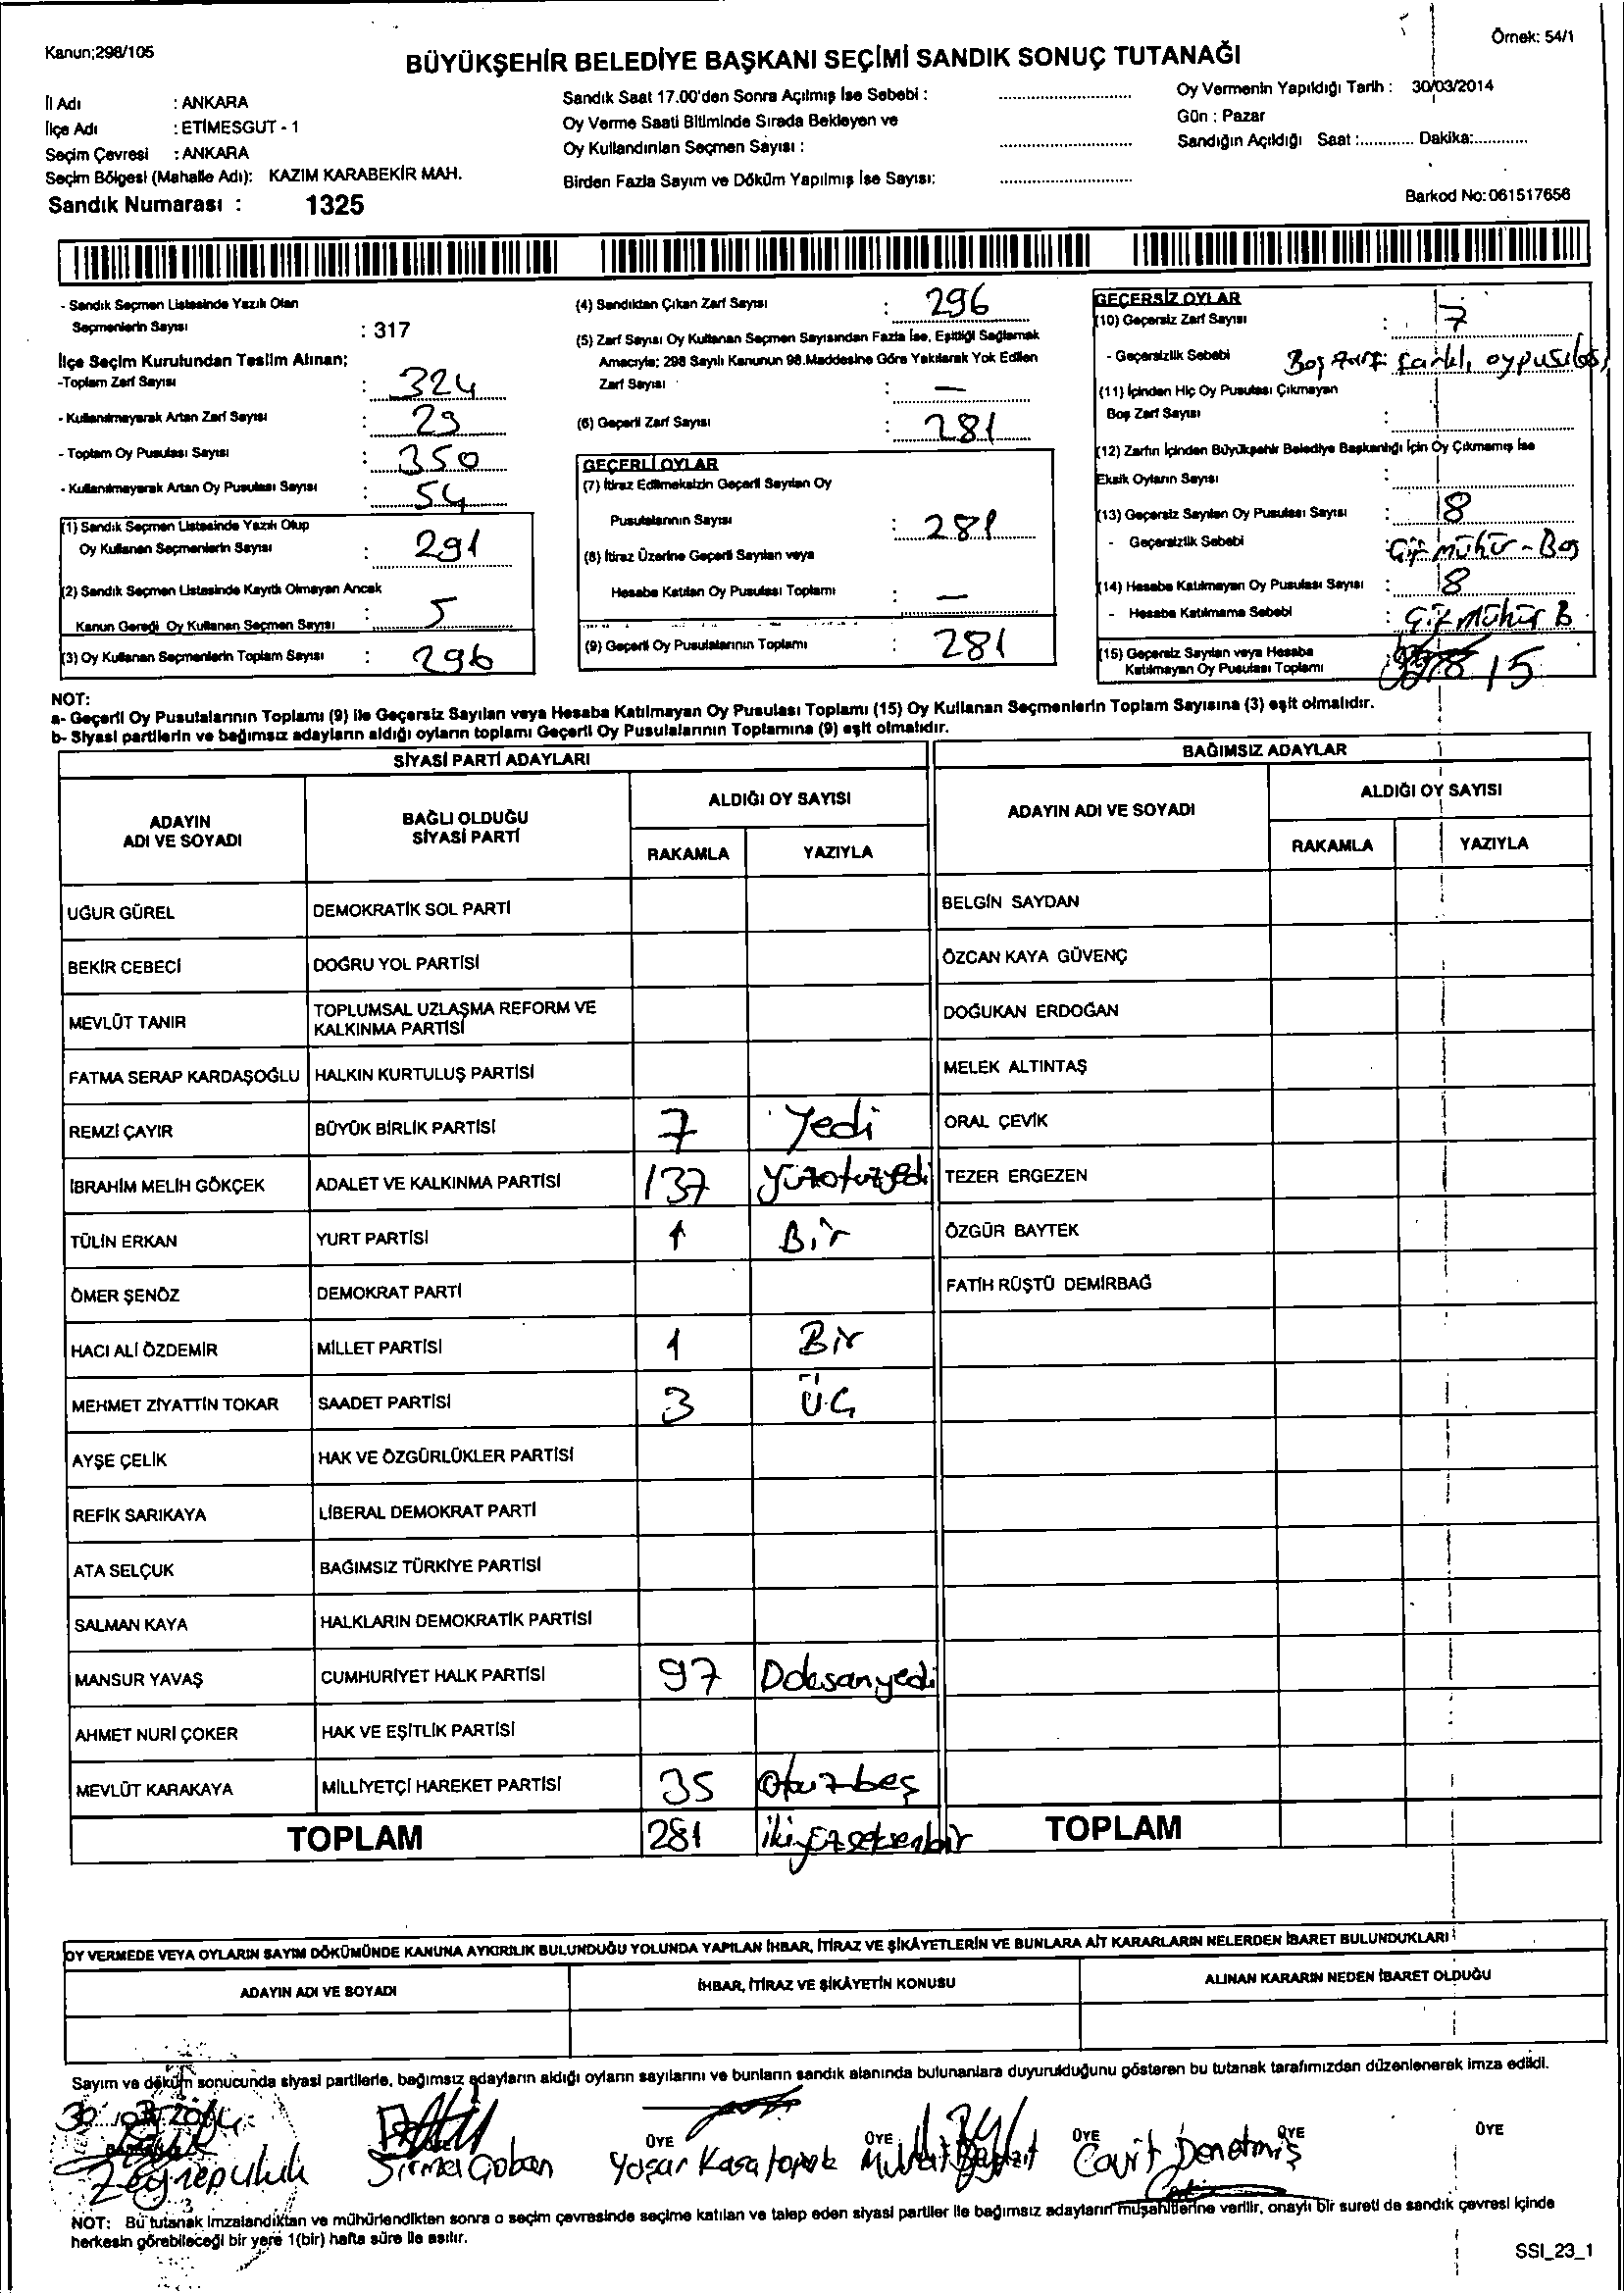 Kanun;298/105
Örnek: 54/1
BÜYÜKŞEHİR BELEDİYE BAŞKANI SEÇİMİ SANDIK SONUÇ TUTANAĞI
İl Adı : ANKARA
İlçe Adı : ETİMESGUT - 1
Seçim Çevresi : ANKARA
Seçim Bölgesi (Mahalle Adı): KAZIM KARABEKİR MAH.
Sandık Numarası : 1325
Sandık Saat 17.00'den Sonra Açılmış İse Sebebi :
Oy Verme Saati Bitiminde Sırada Bekleyen ve
Oy Kullandırılan Seçmen Sayısı :
Birden Fazla Sayım ve Döküm Yapılmış İse Sayısı:
Oy Vermenin Yapıldığı Tarih : 30/03/2014
Gün : Pazar
Sandığın Açıldığı Saat :............ Dakika:............
Barkod No:061517656
- Sandık Seçmen Listesinde Yazılı Olan
Seçmenlerin Sayısı : 317
İlçe Seçim Kurulundan Teslim Alınan;
-Toplam Zarf Sayısı : 324
- Kullanılmayarak Artan Zarf Sayısı : 29
- Toplam Oy Pusulası Sayısı : 350
- Kullanılmayarak Artan Oy Pusulası Sayısı : 54
(1) Sandık Seçmen Listesinde Yazılı Olup
Oy Kullanan Seçmenlerin Sayısı : 291
(2) Sandık Seçmen Listesinde Kayıtlı Olmayan Ancak
Kanun Gereği Oy Kullanan Seçmen Sayısı : 5
(3) Oy Kullanan Seçmenlerin Toplam Sayısı : 296
(4) Sandıktan Çıkan Zarf Sayısı : 296
(5) Zarf Sayısı Oy Kullanan Seçmen Sayısından Fazla İse, Eşitliği Sağlamak
Amacıyla; 298 Sayılı Kanunun 98.Maddesine Göre Yakılarak Yok Edilen
Zarf Sayısı : —
(6) Geçerli Zarf Sayısı : 281
GEÇERLİ OYLAR
(7) İtiraz Edilmeksizin Geçerli Sayılan Oy
Pusulalarının Sayısı : 281
(8) İtiraz Üzerine Geçerli Sayılan veya
Hesaba Katılan Oy Pusulası Toplamı : —
(9) Geçerli Oy Pusulalarının Toplamı : 281
GEÇERSİZ OYLAR
(10) Geçersiz Zarf Sayısı : 7
- Geçersizlik Sebebi Boş zarf farklı oypusulası
(11) İçinden Hiç Oy Pusulası Çıkmayan
Boş Zarf Sayısı :
(12) Zarfın İçinden Büyükşehir Belediye Başkanlığı İçin Oy Çıkmamış İse
Eksik Oyların Sayısı :
(13) Geçersiz Sayılan Oy Pusulası Sayısı : 8
- Geçersizlik Sebebi : Çift mühür - Boş
(14) Hesaba Katılmayan Oy Pusulası Sayısı : 8
- Hesaba Katılmama Sebebi : Çift Mühür B
(15) Geçersiz Sayılan veya Hesaba
Katılmayan Oy Pusulası Toplamı 15
NOT:
a- Geçerli Oy Pusulalarının Toplamı (9) ile Geçersiz Sayılan veya Hesaba Katılmayan Oy Pusulası Toplamı (15) Oy Kullanan Seçmenlerin Toplam Sayısına (3) eşit olmalıdır.
b- Siyasi partilerin ve bağımsız adayların aldığı oyların toplamı Geçerli Oy Pusulalarının Toplamına (9) eşit olmalıdır.
SİYASİ PARTİ ADAYLARI
ADAYIN ADI VE SOYADI BAĞLI OLDUĞU SİYASİ PARTİ ALDIĞI OY SAYISI
RAKAMLA YAZIYLA
UĞUR GÜREL DEMOKRATİK SOL PARTİ
BEKİR CEBECİ DOĞRU YOL PARTİSİ
MEVLÜT TANIR TOPLUMSAL UZLAŞMA REFORM VE KALKINMA PARTİSİ
FATMA SERAP KARDAŞOĞLU HALKIN KURTULUŞ PARTİSİ
REMZİ ÇAYIR BÜYÜK BİRLİK PARTİSİ 7 Yedi
İBRAHİM MELİH GÖKÇEK ADALET VE KALKINMA PARTİSİ 137 yüzotuzyedi
TÜLİN ERKAN YURT PARTİSİ 1 Bir
ÖMER ŞENÖZ DEMOKRAT PARTİ
HACI ALİ ÖZDEMİR MİLLET PARTİSİ 1 Bir
MEHMET ZİYATTİN TOKAR SAADET PARTİSİ 3 ÜÇ
AYŞE ÇELİK HAK VE ÖZGÜRLÜKLER PARTİSİ
REFİK SARIKAYA LİBERAL DEMOKRAT PARTİ
ATA SELÇUK BAĞIMSIZ TÜRKİYE PARTİSİ
SALMAN KAYA HALKLARIN DEMOKRATİK PARTİSİ
MANSUR YAVAŞ CUMHURİYET HALK PARTİSİ 97 Doksanyedi
AHMET NURİ ÇOKER HAK VE EŞİTLİK PARTİSİ
MEVLÜT KARAKAYA MİLLİYETÇİ HAREKET PARTİSİ 35 Otuzbeş
TOPLAM 281 ikiyüzseksenbir
BAĞIMSIZ ADAYLAR
ADAYIN ADI VE SOYADI ALDIĞI OY SAYISI
RAKAMLA YAZIYLA
BELGİN SAYDAN
ÖZCAN KAYA GÜVENÇ
DOĞUKAN ERDOĞAN
MELEK ALTINTAŞ
ORAL ÇEVİK
TEZER ERGEZEN
ÖZGÜR BAYTEK
FATİH RÜŞTÜ DEMİRBAĞ
TOPLAM
OY VERMEDE VEYA OYLARIN SAYIM DÖKÜMÜNDE KANUNA AYKIRILIK BULUNDUĞU YOLUNDA YAPILAN İHBAR, İTİRAZ VE ŞİKÂYETLERİN VE BUNLARA AİT KARARLARIN NELERDEN İBARET BULUNDUKLARI
ADAYIN ADI VE SOYADI İHBAR, İTİRAZ VE ŞİKÂYETİN KONUSU ALINAN KARARIN NEDEN İBARET OLDUĞU
Sayım ve döküm sonucunda siyasi partilerle, bağımsız adayların aldığı oyların sayılarını ve bunların sandık alanında bulunanlara duyurulduğunu gösteren bu tutanak tarafımızdan düzenlenerek imza edildi.
30.03.2014
ÜYE ÜYE ÜYE ÜYE ÜYE
Sirmel Çoban Yaşar Cavit Denetmiş
NOT: Bu tutanak imzalandıktan ve mühürlendikten sonra o seçim çevresinde seçime katılan ve talep eden siyasi partiler ile bağımsız adayların müşahitlerine verilir, onaylı bir sureti de sandık çevresi içinde
herkesin görebileceği bir yere 1(bir) hafta süre ile asılır.
SSI_23_1